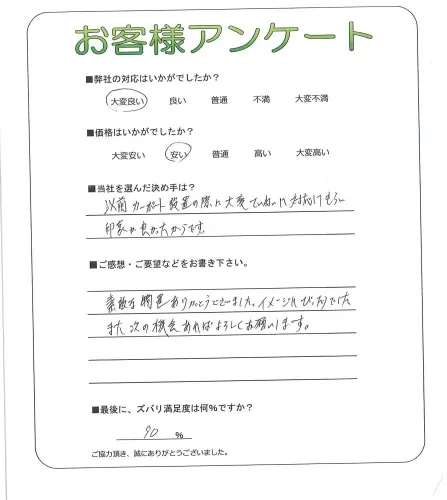 お客様アンケート
■弊社の対応はいかがでしたか?
大変良い 良い 普通 不満 大変不満
■価格はいかがでしたか?
大変安い 安い 普通 高い 大変高い
■当社を選んだ決め手は?
以前カーポート設置の際に大変ていねいに対応してもらい
印象が良かったからです。
■ご感想・ご要望などをお書き下さい。
素敵な物置ありがとうございました。イメージにぴったりでした
また次の機会あればよろしくお願いします。
■最後に、ズバリ満足度は何%ですか?
90 %
ご協力頂き、誠にありがとうございました。